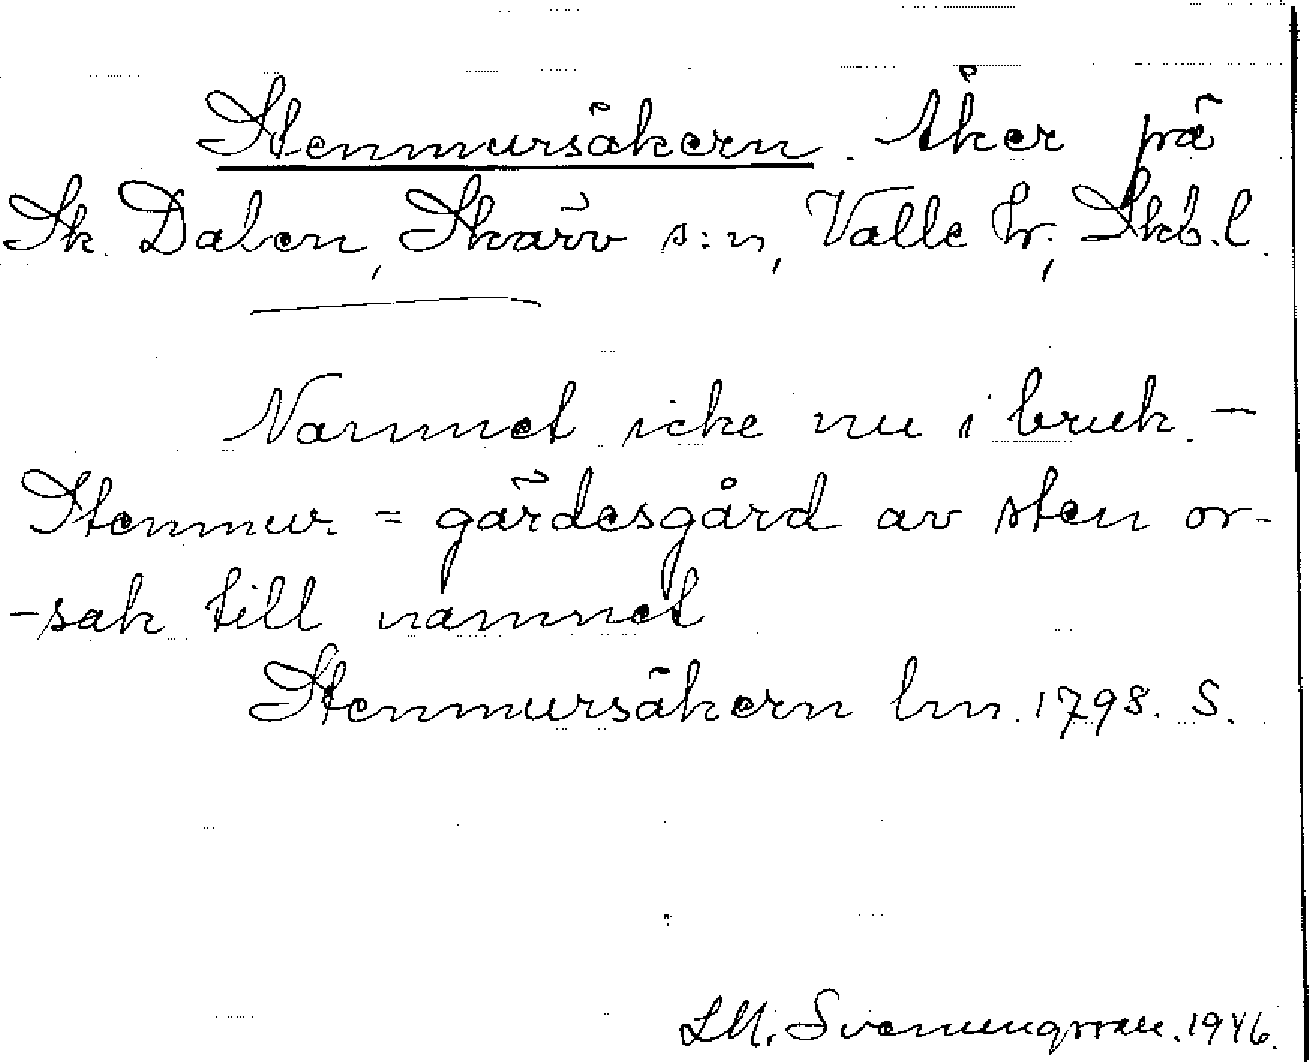 Stenmursåkern. Åker på
Sk. Dalen, Skärv s:n, Valle hr; Skb.l.
Namnet icke nu i bruk. -
Stenmur = gärdesgård av sten or-
-sak till namnet
Stenmursåkern lm. 1798. S.
L.M. Svenungsson. 1946.